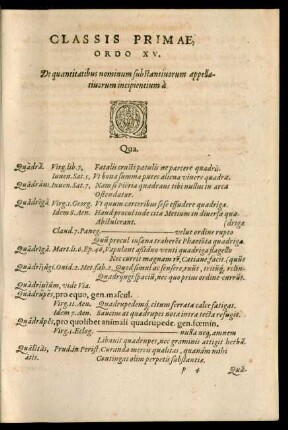 CLASSIS PRIMAE,
ORDO XV.
De quantitatibus nominum substantiuorum appella-
tiuorum incipientium à
Q
Qua.
Quădră. Virg. lib. 7. Fatalis crusti patulis nec parcere quadris.
Iuuen. Sat. 5. Vt bona summa putes aliena viuere quadra.
Quădrāns. Iuuen. Sat. 7. Nam si Pieria quadrans tibi nullus in arca
Ostendatur.
Quădrīgă. Virg. 1. Georg. Vt quum carceribus sese effudere quadrigæ.
Idem 8. Aen. Haud procul inde citæ Metium in diuersa qua-
Abstulerant. (drigæ
Claud. 7. Paneg. velut ordine rupto
Quum procul insana traherēt Phaetōnta quadrigæ
Quădrīgă. Mart. li. 6. Ep. 46. Vapulat assiduè veneti quadriga flagello
Nec currit magnam rē, Catiane facit.
Quădrĭiŭgi. Ouid. 2. Met. fab. 2. Quod simul ac sensere, ruūt, tritūq́, relin-
Quadriiugi spaciū, nec quo prius ordine currūt.
Quădriuium, vide Via.
Quădrŭpes, pro equo, gen. mascul.
Virg. 11. Aen. Quadrupedemq́, citum ferrata calce fatigat.
Idem 7. Aen. Saucius at quadrupes nota intra tecta refugit.
Quădrŭpēs, pro quolibet animali quadrupede. gen. fœmin.
Virg. 1. Eclog. nulla neq, amnem
Libauit quadrupes, nec graminis attigit herbā.
Quālĭtās, Prud. in Perist. Curanda mercis qualitas, quānam mihi
atis. Contingat olim perpetis substantiæ.
P 4 Quā-